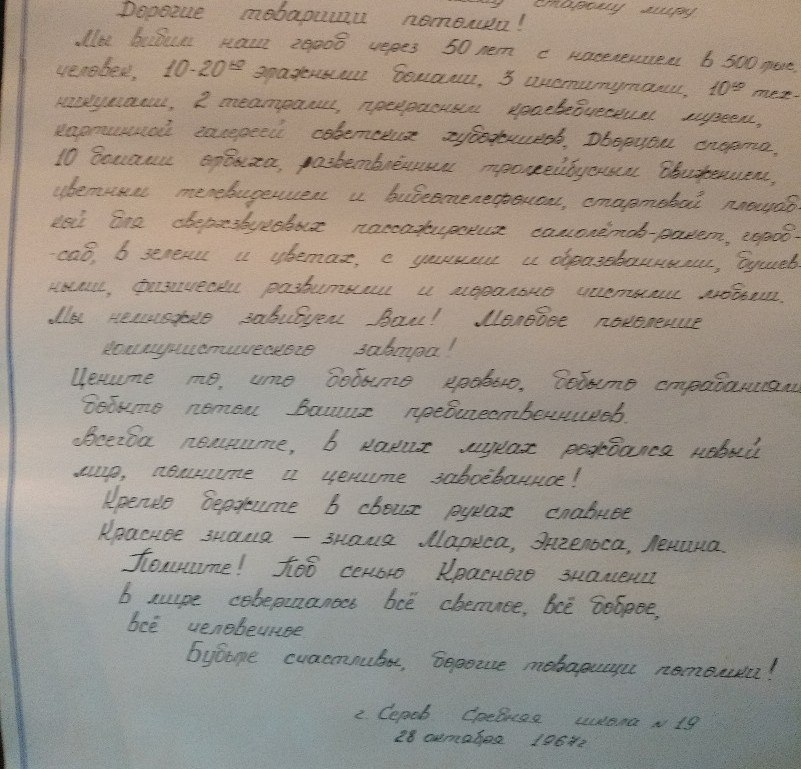 старому миру
Дорогие товарищи потомки!
Мы видим наш город через 50 лет с населением в 500 тыс.
человек, 10-20ю этажными домами, 3 институтами, 10ю тех-
никумами, 2 театрами, прекрасным краеведческим музеем,
картинной галереей советских художников, Дворцом спорта,
10 домами отдыха, разветвлённым троллейбусным движением,
цветным телевидением и видеотелефоном, стартовой площад-
кой для сверхзвуковых пассажирских самолётов-ракет, город-
-сад, в зелени и цветах, с умными и образованными, душев-
ными, физически развитыми и морально чистыми людьми.
Мы немножко завидуем Вам! Молодое поколение
коммунистического завтра!
Цените то, что добыто кровью, добыто страданиями
добыто потом Ваших предшественников.
Всегда помните, в каких муках рождался новый
мир, помните и цените завоёванное!
Крепко держите в своих руках славное
Красное знамя — знамя Маркса, Энгельса, Ленина.
Помните! Под сенью Красного знамени
в мире совершалось всё светлое, всё доброе,
всё человечное
Будьте счастливы, дорогие товарищи потомки!
г. Серов Средняя школа № 19
28 октября 1967г